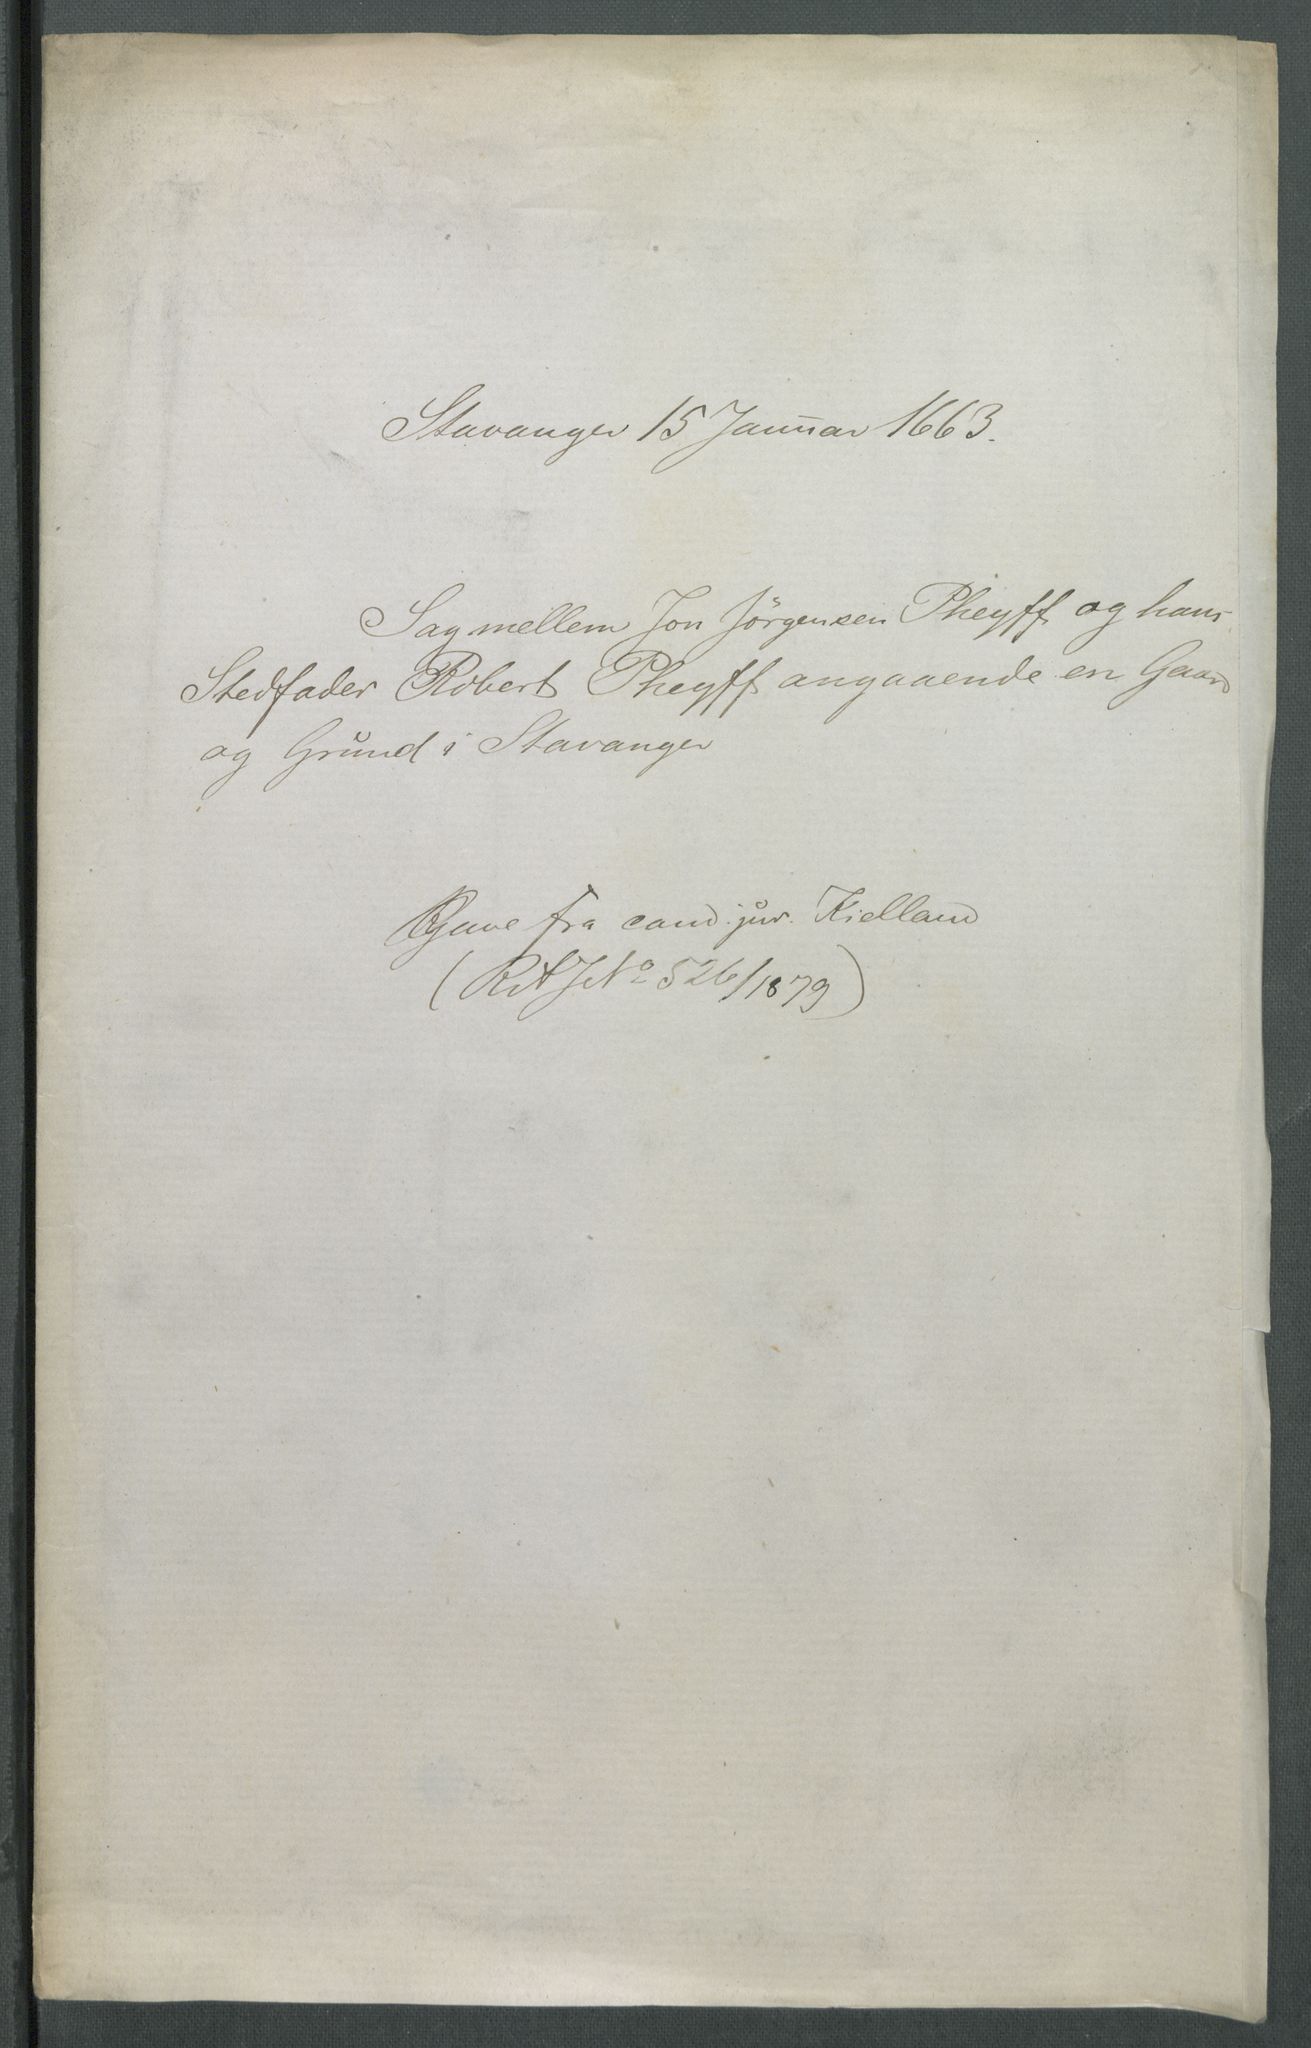 Stavanger 15 Januar 1663.
Sag mellem Jon Jörgensen Pheyff og hans
Stedfader Robert Pheyff angaaende en Gaard
og Grund i Stavanger
Gave fra cand. jur. Kielland
(RA J No 526/1879)